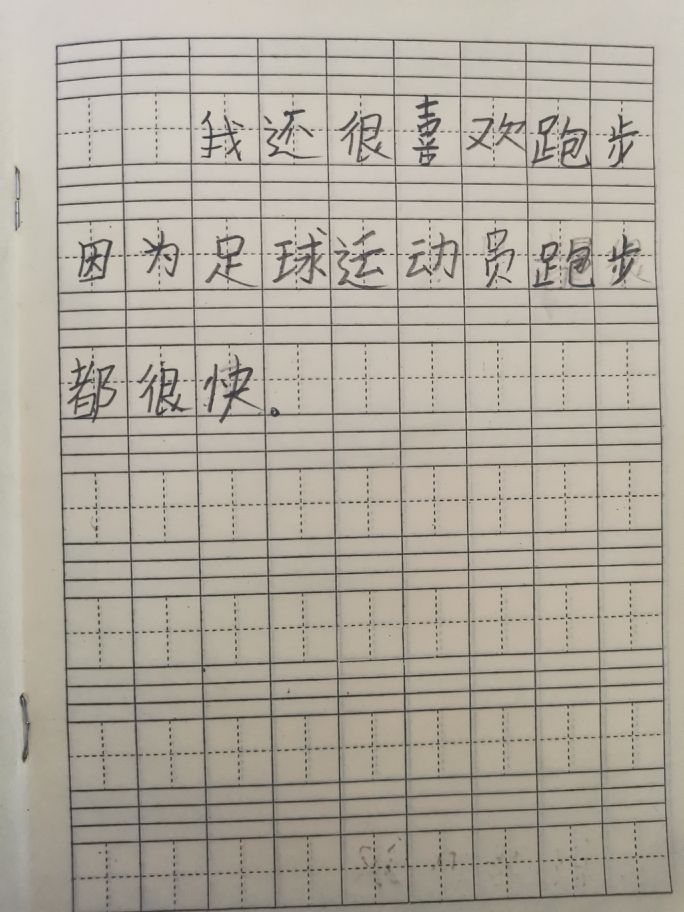 我还很喜欢跑步
因为足球运动员跑步
都很快。